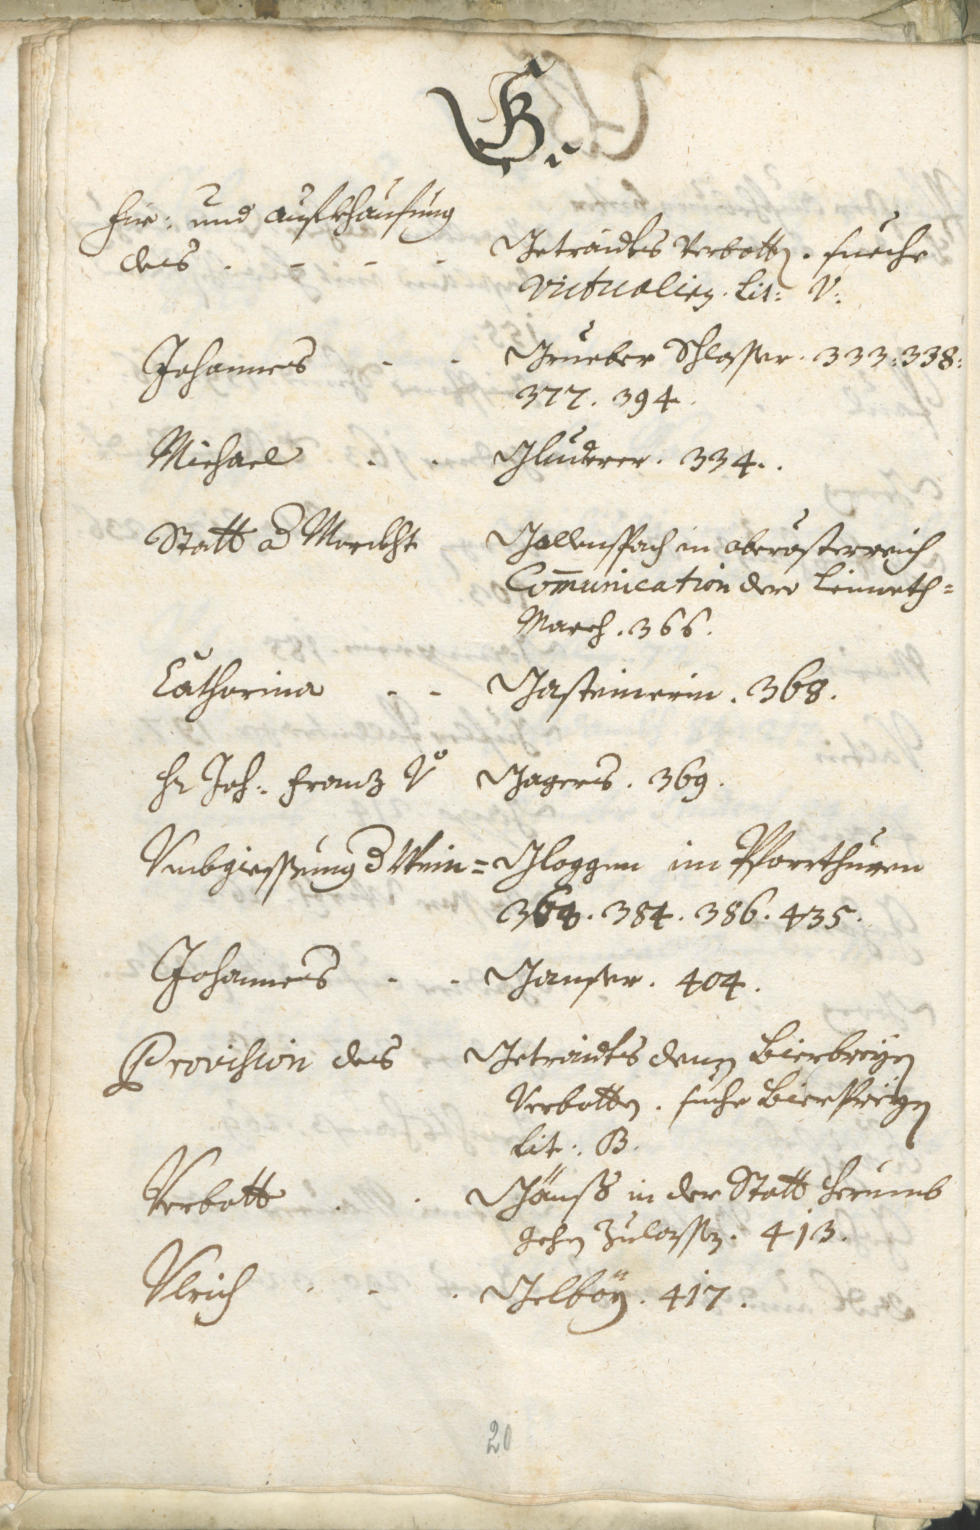 G.
Für: und aufkhauffung
des . - - - Getraidts Verbott. sueche
Victualien. Lit: V:
Johannes - - Grueber Schlosser. 333:338:
377. 394.
Michael . . Gluderer. 334..
Statt ad Marckht Gallenspach in oberösterreich
Com̅unication dero Leinweth=
March. 366.
Catharina - - Gasteinerin. 368.
Hr Joh: Franz Vo Gagers. 369.
Vmbgiessung d Wein= Gloggen im Pfarrthurn
364. 384. 386. 435.
Johannes - - Ganser. 404.
Provision des Getraidts denen Bierbreyen
Verbotten. suche Bierpreyen
Lit: B.
Verbott . . Gänss in der Statt herumb
gehen Zulassen. 413.
Vlrich . - . Gelböy. 417.
20